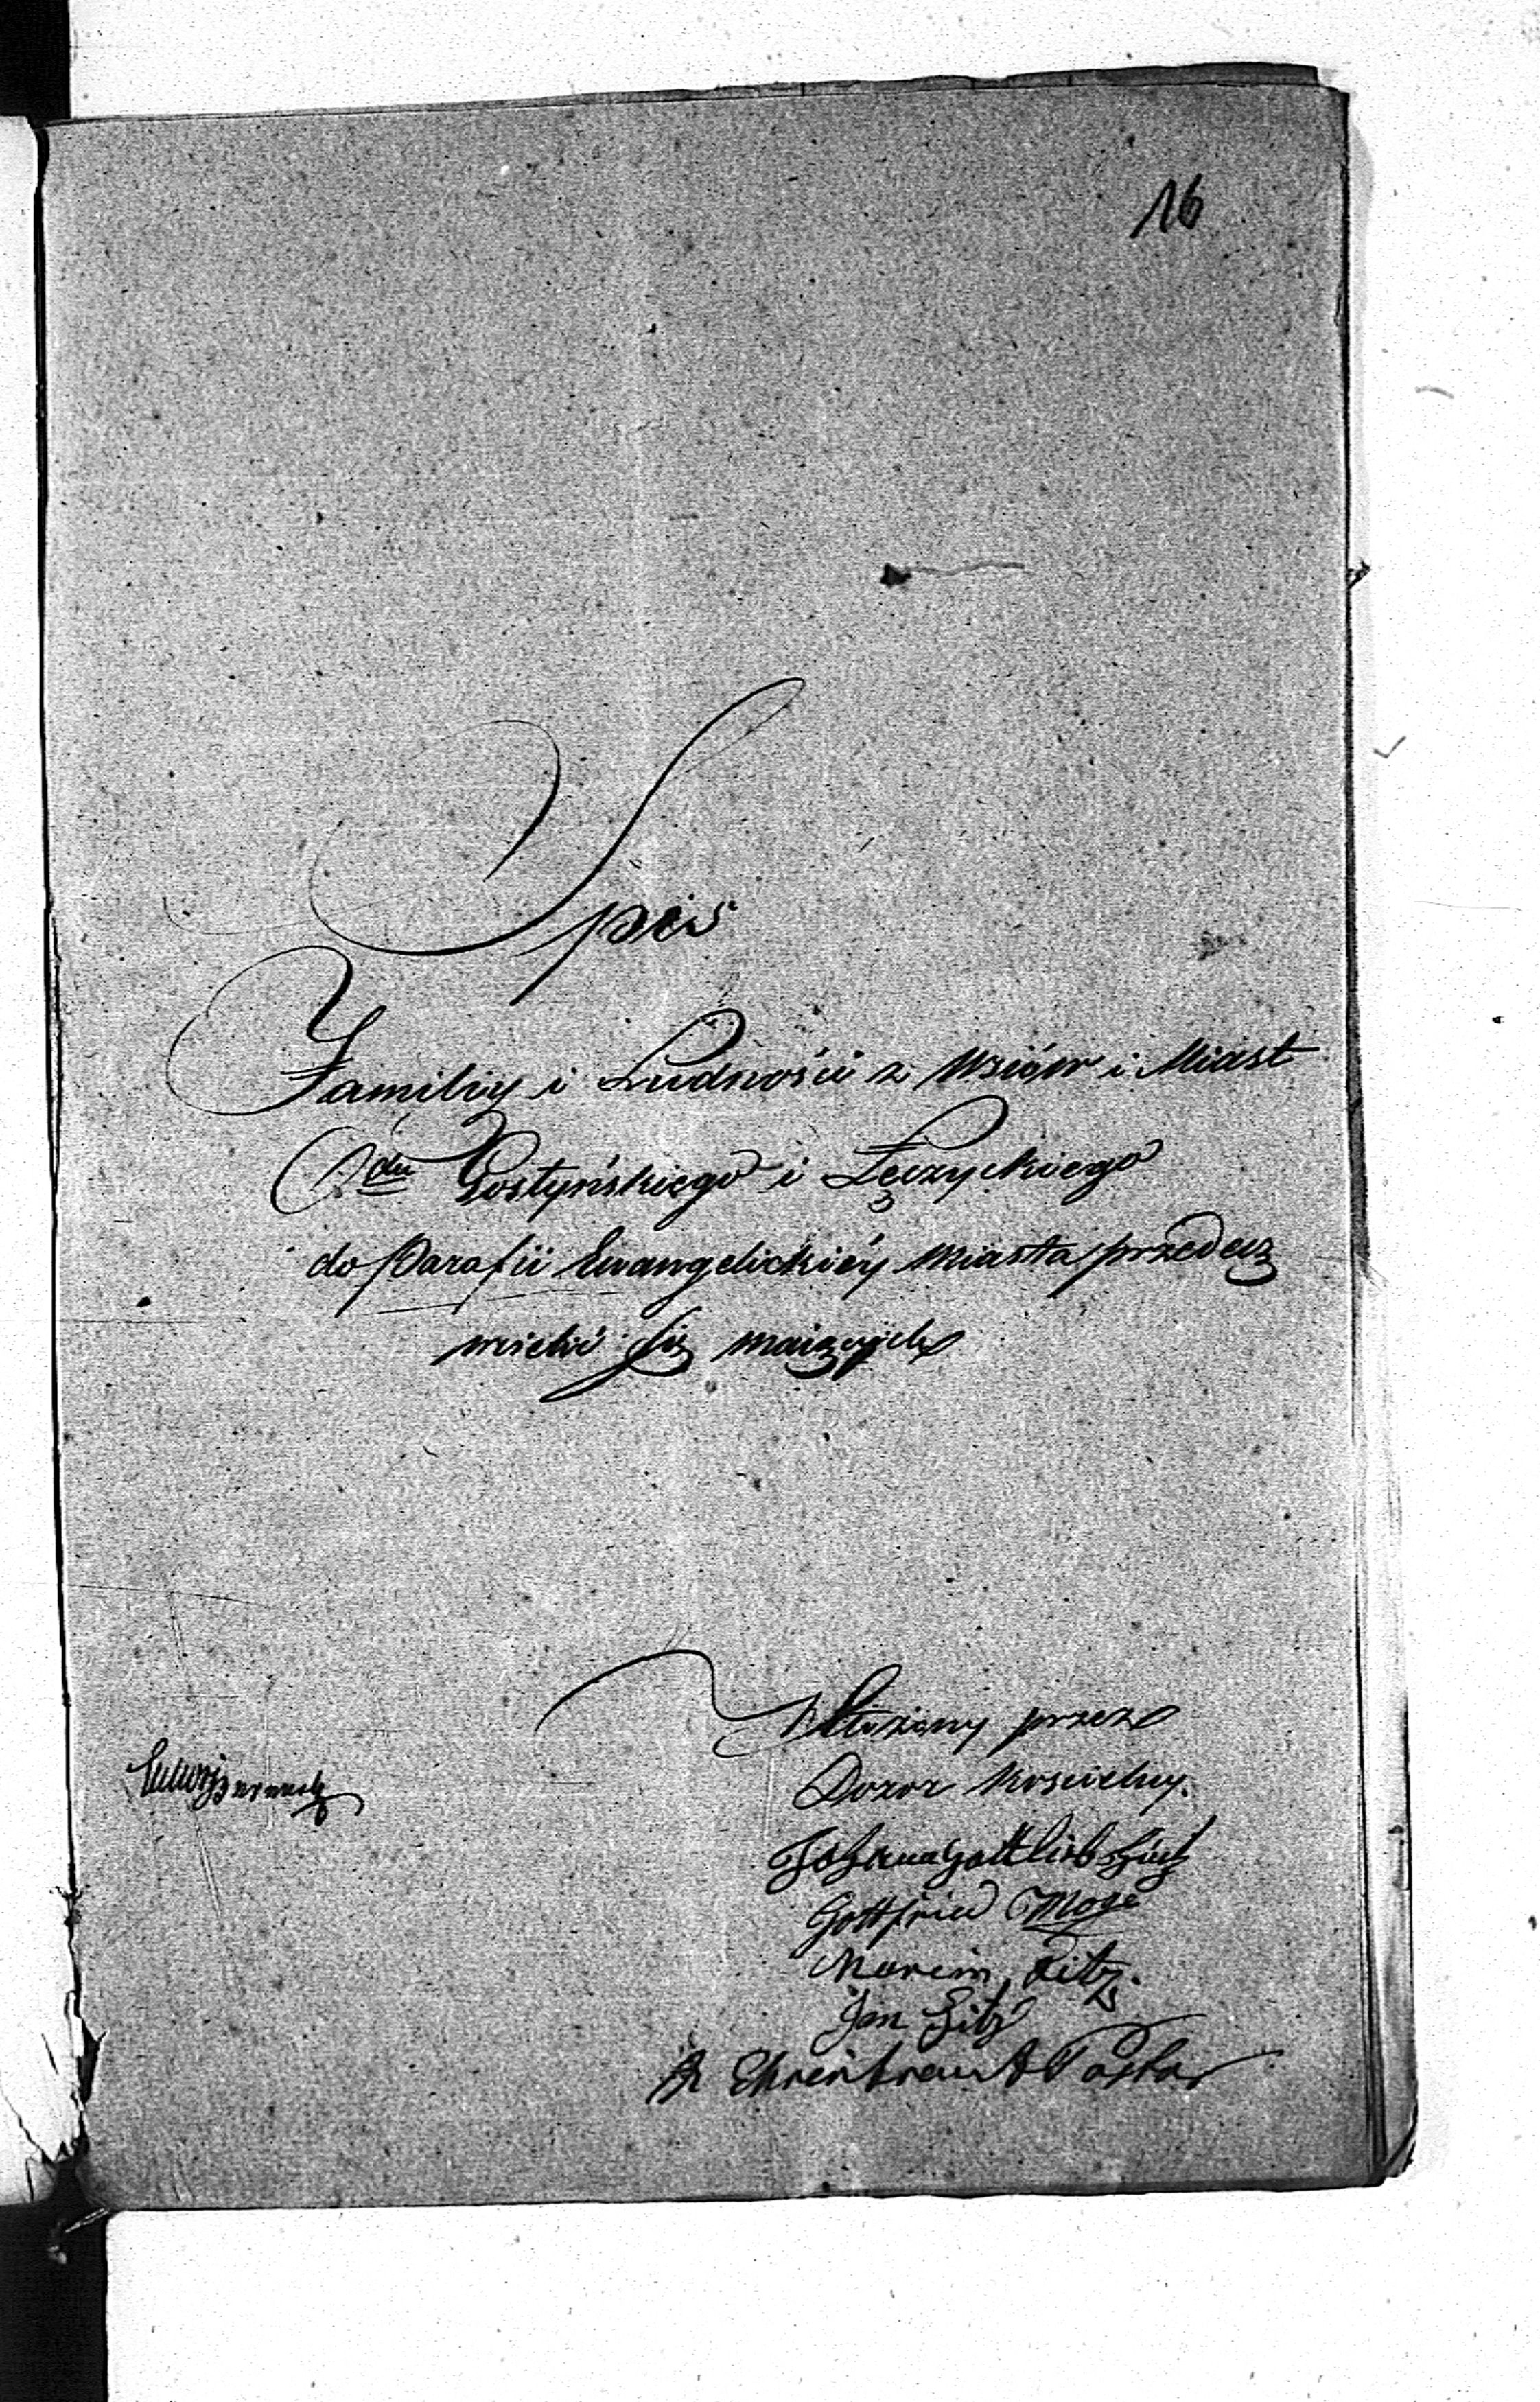 16
Spis
Familiy i Ludności z Wsiów i Miast
Pdu Gostyńskiego i Łęczyckiego
do Parafii Ewangelickiéy Miasta Przedecz
wcielić się maiących
Ułożony przez
Dozor Koscielny.
Gottlieb
Gottfried Moge
Marcin
Jan
Ehrentraut Pastor